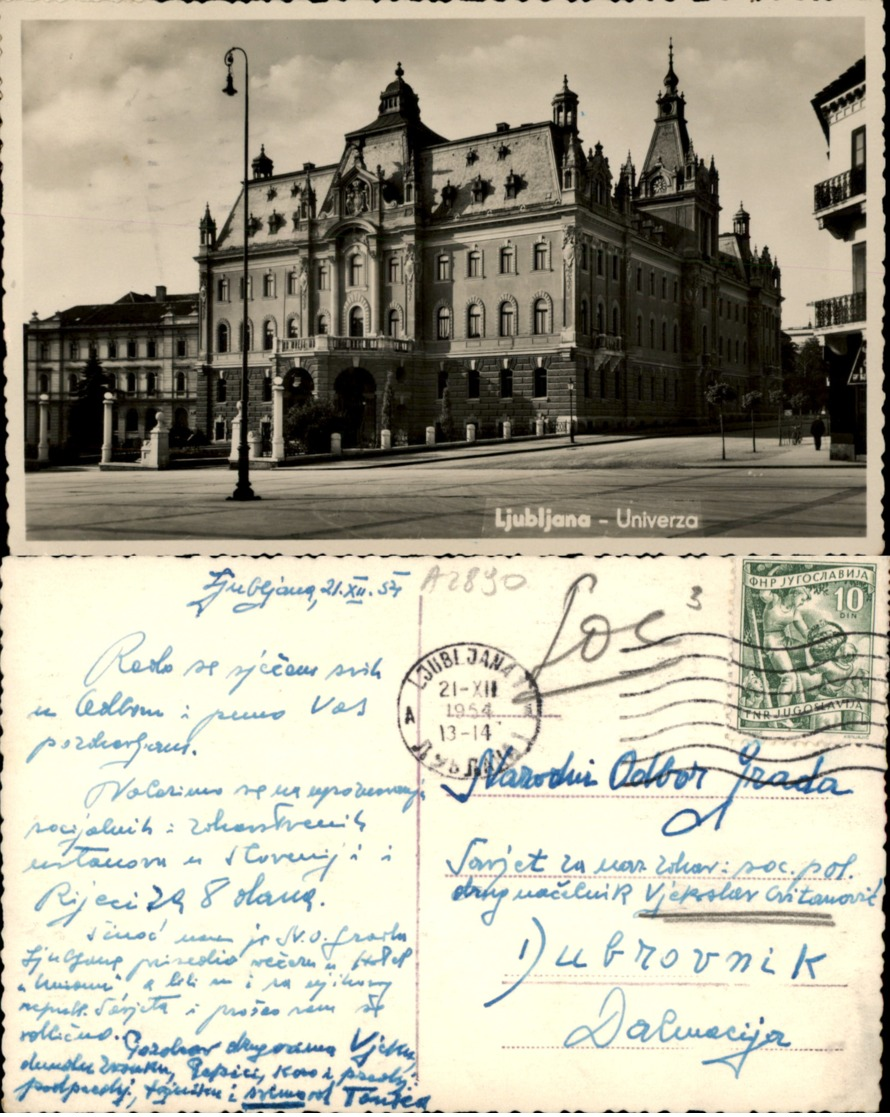 Ljubljana - Univerza
Ljubljana, 21.XII.54
A2890
Rado se sjećam svih
u Odboru i puno Vas
pozdravljam.
Nalazimo se na upoznavanju
socijalnih i zdravstvenih
ustanova u Sloveniji i
Rijeci za 8 dana.
Sinoć nam je N.O. grada
Ljubljane priredio večeru u Hotel
"Union" a bili su i sa njihovog
Savjeta i proveo sam se
odlično.
Pozdrav drugovima Vjeku,
i
podpredsj, tajniku i svima od Tonića
3
LJUBLJANA 1
21-XII
1954
13-14
A
ЉУБЉАНА 1
ФНР ЈУГОСЛАВИЈА
10
DIN
FNR JUGOSLAVIJA
Narodni Odbor Grada
Savjet za nar. zdrav. i soc. pol.
drug načelnik Vjekoslav Cvitanović
Dubrovnik
Dalmacija